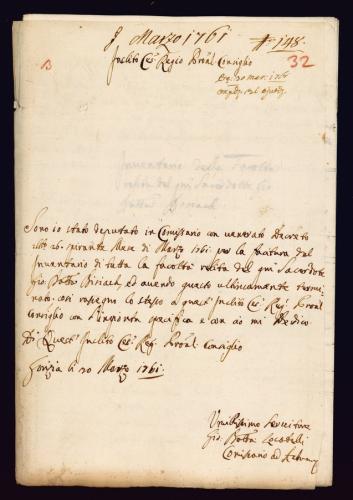 Marzo 1761
148
32
B
Inclito Ces. Regio Prõal Consiglio
Inventario della Facoltà
relita del qm Sacerdote Gio
Batta
Sono io stato deputato in Comissario con venerato Decreto
26. spirante Mese di Marzo 1761 per la fattura dell
Inventario di tutta la facoltà relita del qm Sacerdote
Gio. Batta ed avendo questo ultimamente termi
nato, così rassegno lo stesso a quest Inclito Ces. Reg. Prõal
Consiglio con l'ingionta specifica e con ciò mi dedico
Di Quest' Inclito Ces. Reg. Prõal. Consiglio
Gorizia li 20 Marzo 1761.
Umilissimo Servitore
Gio. Batta Locatelli
Comissario